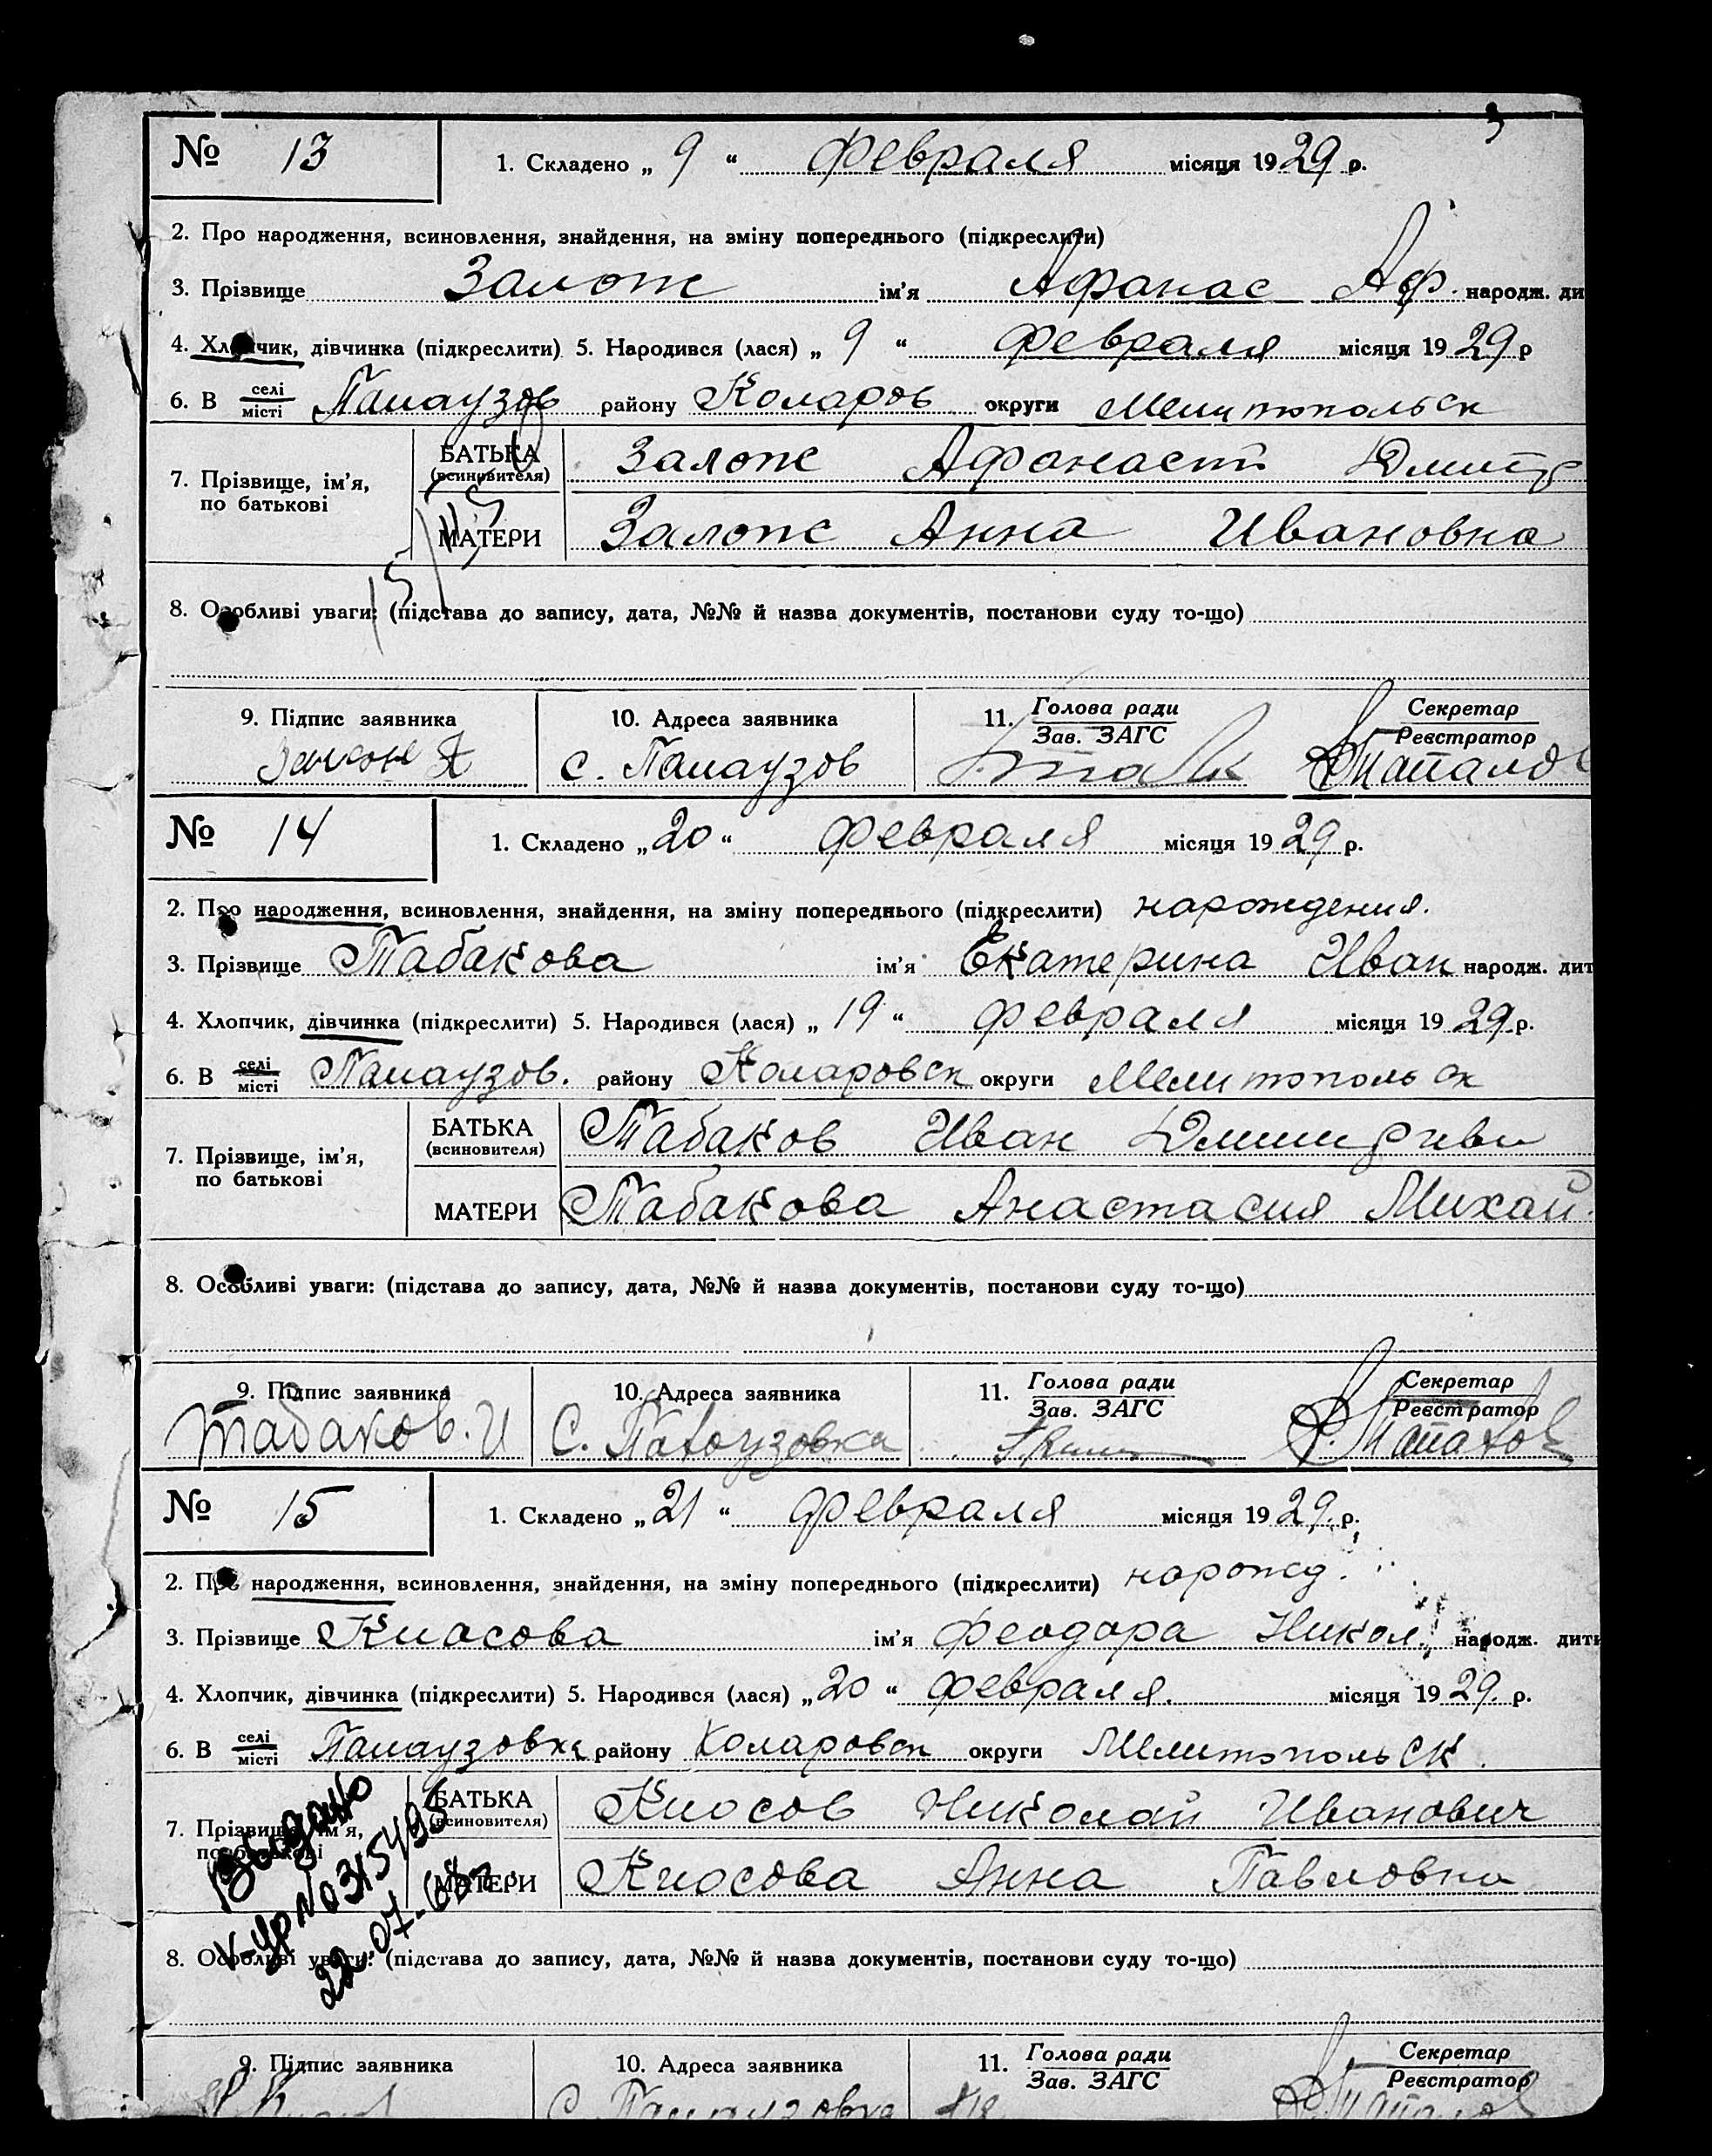 3
№ 13 1. Складено „ 9 “ февраля місяця 1929 р.
2. Про народження, всиновлення, знайдення, на зміну попереднього (підкреслити)
3. Прізвище Залож ім'я Афанас Аф. народж. ди
4. Хлопчик, дівчинка (підкреслити) 5. Народився (лася) „ 9 “ февраля місяця 1929 р
6. В селі/місті Палаузов району Коларов округи Мелитопольск
7. Прізвище, ім'я, по батькові
БАТЬКА (всиновителя) Залож Афанасий Дмитр
МАТЕРИ Залож Анна Ивановна
8. Особливі уваги: (підстава до запису, дата, №№ й назва документів, постанови суду то-що)
9. Підпис заявника 10. Адреса заявника 11. Голова ради/Зав. ЗАГС Секретар/Реєстратор
Залож А с. Палаузов
№ 14 1. Складено „ 20 “ февраля місяця 1929 р.
2. Про народження, всиновлення, знайдення, на зміну попереднього (підкреслити) нарождения.
3. Прізвище Табакова ім'я Екатерина Иван народж. дит
4. Хлопчик, дівчинка (підкреслити) 5. Народився (лася) „ 19 “ февраля місяця 1929 р.
6. В селі/місті Палаузов. району Коларовск округи Мелитопольск
7. Прізвище, ім'я, по батькові
БАТЬКА (всиновителя) Табаков Иван Дмитриеви
МАТЕРИ Табакова Анастасия Михай.
8. Особливі уваги: (підстава до запису, дата, №№ й назва документів, постанови суду то-що)
9. Підпис заявника 10. Адреса заявника 11. Голова ради/Зав. ЗАГС Секретар/Реєстратор
Табаков. И С. Палоузовка
№ 15 1. Складено „ 21 “ февраля місяця 1929. р.
2. Про народження, всиновлення, знайдення, на зміну попереднього (підкреслити) нарожд.
3. Прізвище Кюсова ім'я Феодора Никол. народж. дити
4. Хлопчик, дівчинка (підкреслити) 5. Народився (лася) „ 20 “ февраля. місяця 1929. р.
6. В селі/місті Палаузовке району Коларовск округи Мелитопольск.
7. Прізвище, ім'я, по батькові
БАТЬКА (всиновителя) Кюсов Николай Иванович
МАТЕРИ Кюсова Анна Павловна
Выдано
22-07-68г.
8. Особливі уваги: (підстава до запису, дата, №№ й назва документів, постанови суду то-що)
9. Підпис заявника 10. Адреса заявника 11. Голова ради/Зав. ЗАГС Секретар/Реєстратор
С. Палаузовка